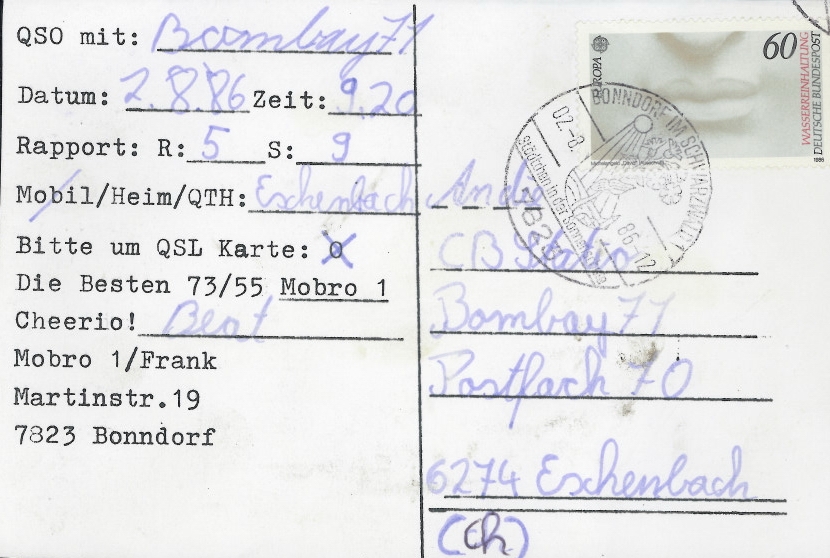 QSO mit: Bombay 71
Datum: 2.8.86 Zeit: 9.20
Rapport: R: 5 S: 9
Mobil/Heim/QTH: Eschenbach
Bitte um QSL Karte: O X
Die Besten 73/55 Mobro 1
Cheerio! Beat
Mobro 1/Frank
Martinstr.19
7823 Bonndorf
60
EUROPA
WASSERREINHALTUNG
DEUTSCHE BUNDESPOST
1986
BONNDORF IM SCHWARZWALD
02.-8.
86.-12
7823
Andre
CB Station
Bombay 71
Postfach 70
6274 Eschenbach
(Ch)